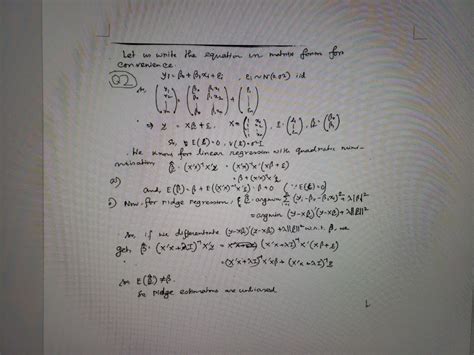 Let us write the equation in matrix form for
convenience.
Q2 y_i = β_0 + β_1 x_i + ε_i , ε_i ~ N(0, σ²) iid
⇒ y = Xβ + ε
So, E(ε) = 0, V(ε) = σ²I
We know for linear regression with quadratic
β̂ = (X'X)⁻¹X'y = (X'X)⁻¹X'(Xβ + ε)
= β + (X'X)⁻¹X'ε
a) And, E(β̂) = β + E((X'X)⁻¹X'ε) = β + 0 (∵ E(ε) = 0)
b) Now, for ridge regression, β̂ = argmin Σ (y_i - β_0 - β_1 x_i)² + λ||β||²
= argmin (y - Xβ)'(y - Xβ) + λ||β||²
So, if we differentiate (y - Xβ)'(y - Xβ) + λ||β||² w.r.t. β, we
get β̂ = (X'X + λI)⁻¹X'y = (X'X + λI)⁻¹X'(Xβ + ε)
= (X'X + λI)⁻¹X'Xβ + (X'X + λI)⁻¹X'ε
So E(β̂) ≠ β.
So ridge estimators are unbiased